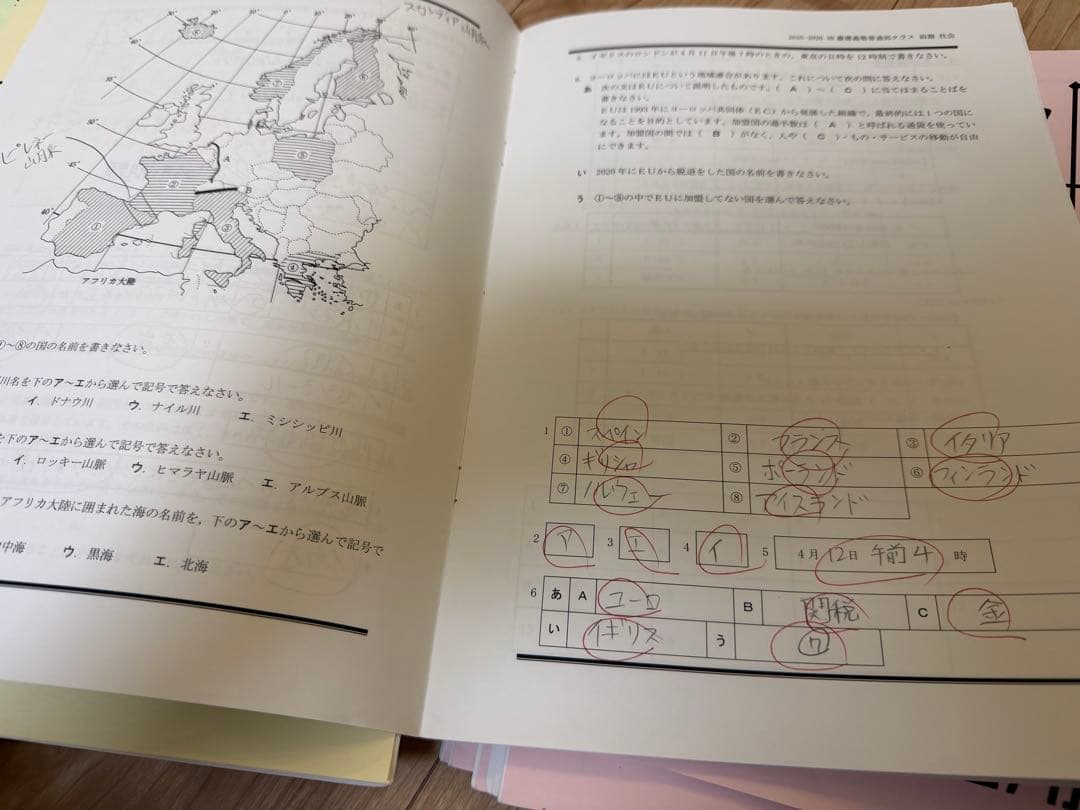 スカンディナビア山脈
ピレネ
山脈
10°
0°
10°
20°
30°
45°
40°
A
B
①
②
③
④
⑤
⑥
アフリカ大陸
①~⑧の国の名前を書きなさい。
川名を下のア~エから選んで記号で答えなさい。
イ. ドナウ川 ウ. ナイル川 エ. ミシシッピ川
を下のア~エから選んで記号で答えなさい。
イ. ロッキー山脈 ウ. ヒマラヤ山脈 エ. アルプス山脈
アフリカ大陸に囲まれた海の名前を, 下のア~エから選んで記号で
中海 ウ. 黒海 エ. 北海
2025-2026 慶應義塾普通部クラス 前期 社会
5. イギリスのロンドンが4月11日午後7時のときの、東京の日時を12時制で書きなさい。
6. ヨーロッパにはEUという地域連合があります。これについて次の問に答えなさい。
あ 次の文はEUについて説明したものです。( A )~( C )に当てはまることばを
書きなさい。
EUは1993年にヨーロッパ共同体(EC)から発展した組織で、最終的には1つの国に
なることを目的としています。加盟国の過半数は( A )と呼ばれる通貨を使ってい
ます。加盟国の間では( B )がなく、人や( C )・もの・サービスの移動が自由
にできます。
い 2020年にEUから脱退をした国の名前を書きなさい。
う ①~⑧の中でEUに加盟してない国を選んで答えなさい。
1 ① スペイン ② フランス ③ イタリア
④ ギリシャ ⑤ ポーランド ⑥ フィンランド
⑦ ノルウェー ⑧ アイスランド
2 ア 3 エ 4 イ 5 4月12日 午前4時
6 あ A ユーロ B 関税 C 金
い イギリス う ⑦